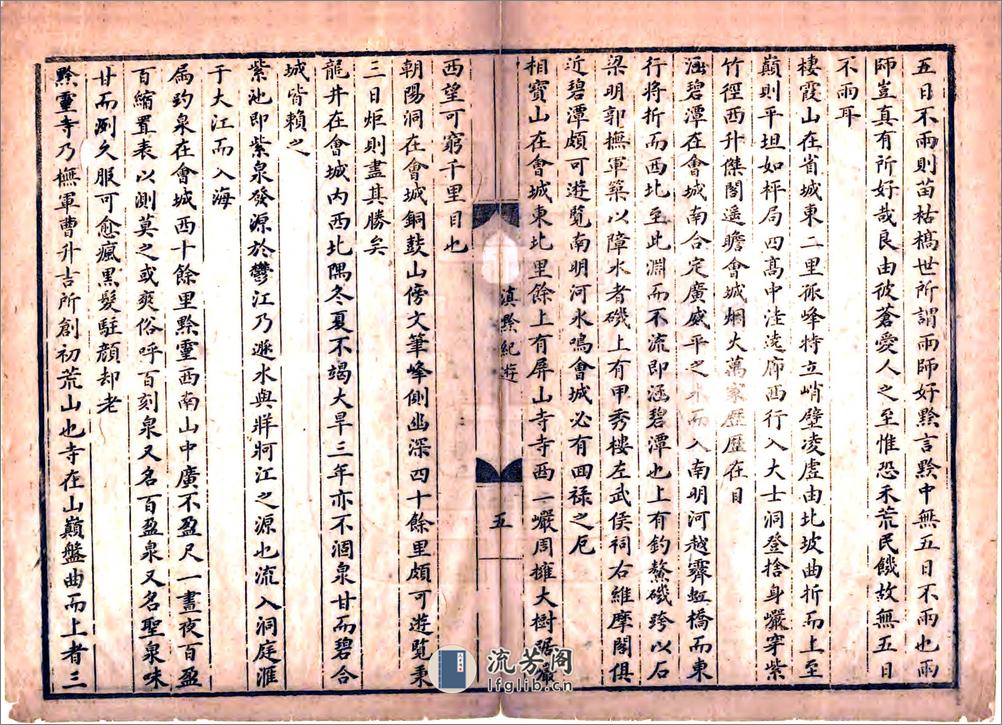 五日不雨則苗枯槁世所謂雨師好黔言黔中無五日不雨也雨
師豈真有所好哉良由彼蒼愛人之至惟恐禾荒民饑故無五日
不雨耳
棲霞山在省城東二里孤峰特立峭壁凌虛由北坡曲折而上至
巔則平坦如枰局四高中洼遶廊西行入大士洞登捨身巖穿紫
竹徑西升傑閣遥瞻會城烟火萬家歷歷在目
涵碧潭在會城南合定廣威平之水而入南明河越霽虹橋而東
行將折而西北至此淵而不流即涵碧潭也上有釣鰲磯跨以石
梁明郭撫軍築以障水者磯上有甲秀樓左武侯祠右維摩閣俱
近碧潭頗可遊覽南明河水鳴會城必有回祿之厄
相寶山在會城東北里餘上有屏山寺寺西一巖周擁大樹踞巖
滇黔紀遊
五
西望可窮千里目也
朝陽洞在會城銅鼓山傍文筆峰側幽深四十餘里頗可遊覽秉
三日炬則盡其勝矣
龍井在會城內西北隅冬夏不竭大旱三年亦不涸泉甘而碧合
城皆賴之
紫池即紫泉發源於鬱江乃遯水與牂牁江之源也流入洞庭滙
于大江而入海
為趵泉在會城西十餘里黔靈西南山中廣不盈尺一晝夜百盈
百縮置表以測莫之或爽俗呼百刻泉又名百盈泉又名聖泉味
甘而冽久服可愈瘋黑髮駐顏却老
黔靈寺乃撫軍曹升吉所創初荒山也寺在山巔盤曲而上者三
流芳閣
lfglib.cn